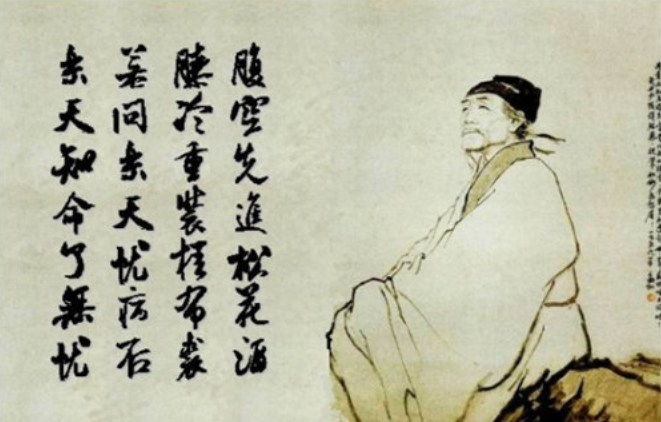 腹空先進松花酒
膝冷重裝桂布裘
若問樂天忧病否
樂天知命了無忧